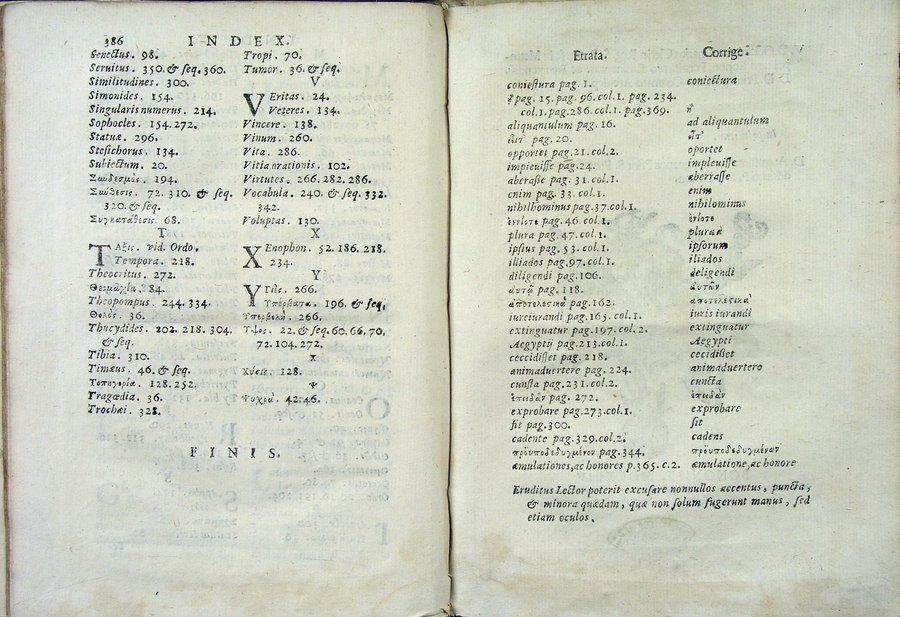 386 INDEX.
Senectus. 98.
Seruitus. 350. & seq. 360.
Similitudines. 300.
Simonides. 154.
Singularis numerus. 214.
Sophocles. 154. 272.
Statuæ. 296.
Stesichorus. 134.
Subiectum. 20.
Σύνδεσμος. 194.
Σύνθεσις. 72. 310. & seq.
320. & seq.
Συγκατάθεσις. 68.
T
TAxis. vid. Ordo.
Tempora. 218.
Theocritus. 272.
84.
Theopompus. 244. 334.
36.
Thucydides. 202. 218. 304.
& seq.
Tibia. 310.
Timæus. 46. & seq.
Τοπηγορία. 128. 252.
Tragœdia. 36.
Trochæi. 328.
Tropi. 70.
Tumor. 36. & seq.
V
VEritas. 24.
Veteres. 134.
Vincere. 138.
Vinum. 260.
Vita. 286.
Vitia orationis. 102.
Virtutes. 266. 282. 286.
Vocabula. 240. & seq. 332.
342.
Voluptas. 130.
X
XEnophon. 52. 186. 218.
234.
Y
266.
Ὑπέρβατα. 196. & seq.
Ὑπερβολή. 266.
Ὕψος. 22. & seq. 60. 66. 70,
72. 104. 272.
X
Χύσις. 128.
Ψ
Ψυχρὰ. 42. 46.
FINIS.
Errata. Corrige.
coniestura pag. 1. coniectura
pag. 15. pag. 96. col. 1. pag. 234.
col. 1. pag. 286. col. 1. pag. 369. ἢ
aliquantulum pag. 16. ad aliquantulum
pag. 20.
opportet pag. 21. col. 2. oportet
impieuisse pag. 24. impleuisse
aberasse pag. 31. col. 1. aberrasse
cnim pag. 33. col. 1. enim
nihilhominus pag. 37. col. 1. nihilominus
pag. 46. col. 1.
plura pag. 47. col. 1. plura à
ipsius pag. 53. col. 1. ipsorum
iliados pag. 97. col. 1. iliados
diligendi pag. 106. deligendi
αυτῷ pag. 118. αυτῶν
αποτελεσικὰ pag. 162. αποτελεστικὰ
iurciurandi pag. 165. col. 1. iuris iurandi
extinguatur pag. 197. col. 2. extinguatur
Aegyptij pag. 213. col. 1. Aegypti
ceccidisset pag. 218. cecidisset
animaduertere pag. 224. animaduertero
cunsta pag. 231. col. 2. cuncta
pag. 272. ἐπειδὰν
exprobare pag. 273. col. 1. exprobare
sit pag. 300. sit
cadente pag. 329. col. 2. cadens
προυποδεδυγμένον pag. 344. προυποδεδυγμένων
æmulationes, ac honores p. 365. c. 2. æmulatione, ac honore
Eruditus Lector poterit excusare nonnullos accentus, puncta,
& minora quædam, quæ non solum fugerunt manus, sed
etiam oculos.